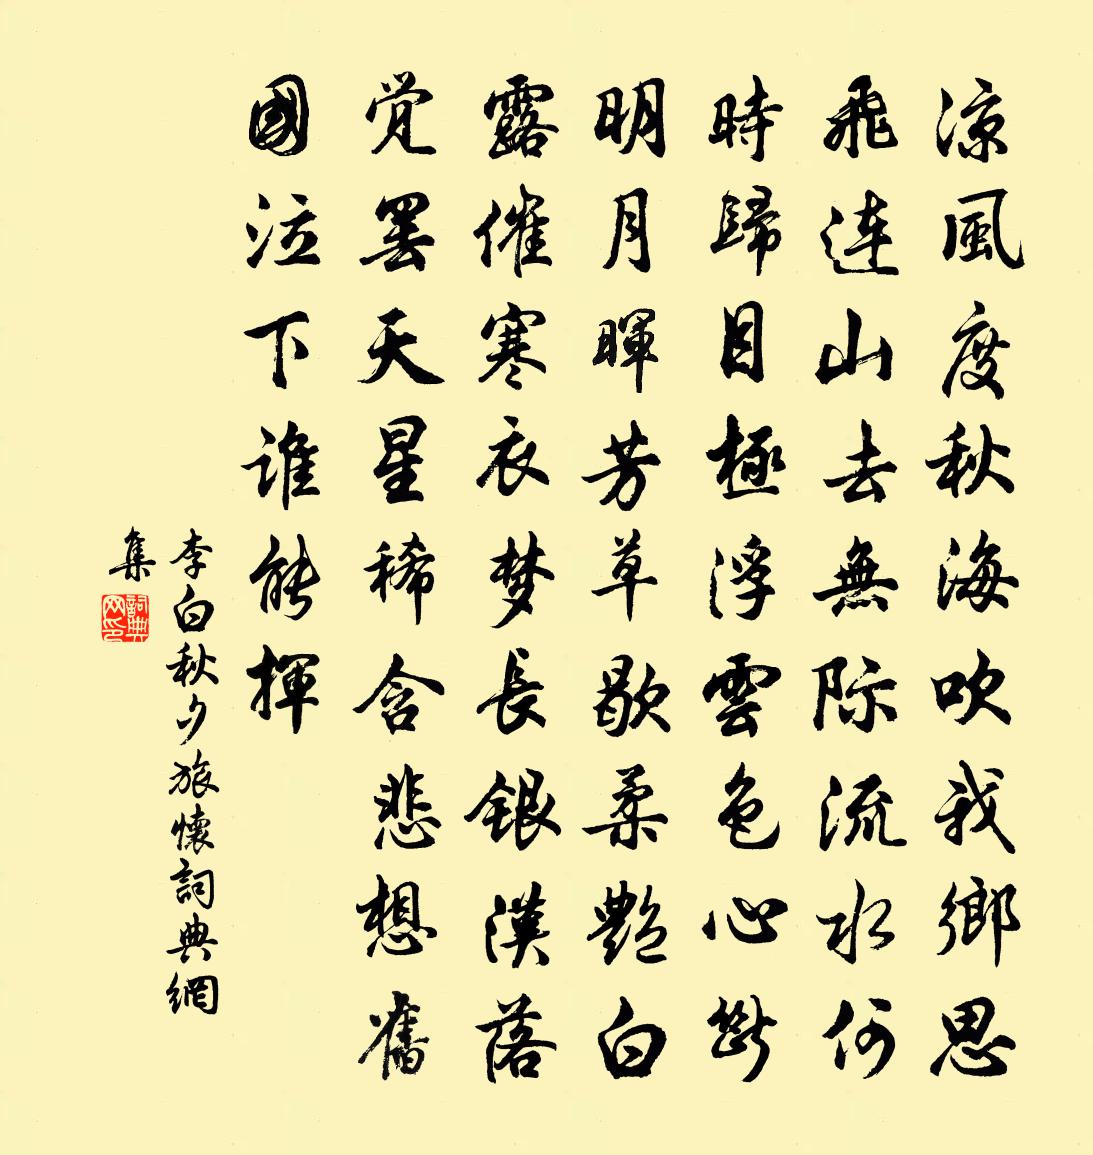 涼風度秋海吹我鄉思
飛連山去無際流水何
時歸目極浮雲色心斷
明月暉芳草歇柔艷白
露催寒衣梦長銀漢落
覚罢天星稀含悲想舊
國泣下誰能揮
李白秋夕旅懷詞典網
集
詞典
网印